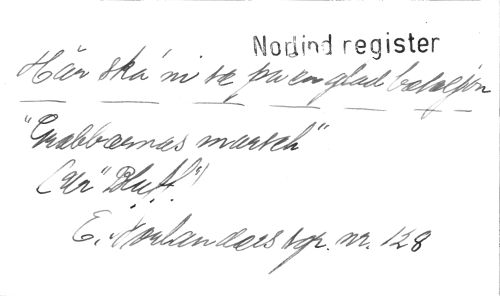 Nodind register
Här ska' ni se på en glad bataljon
"Grabbarnas marsch"
(Ur "Bluff")
E. Norlanders spr. nr. 128